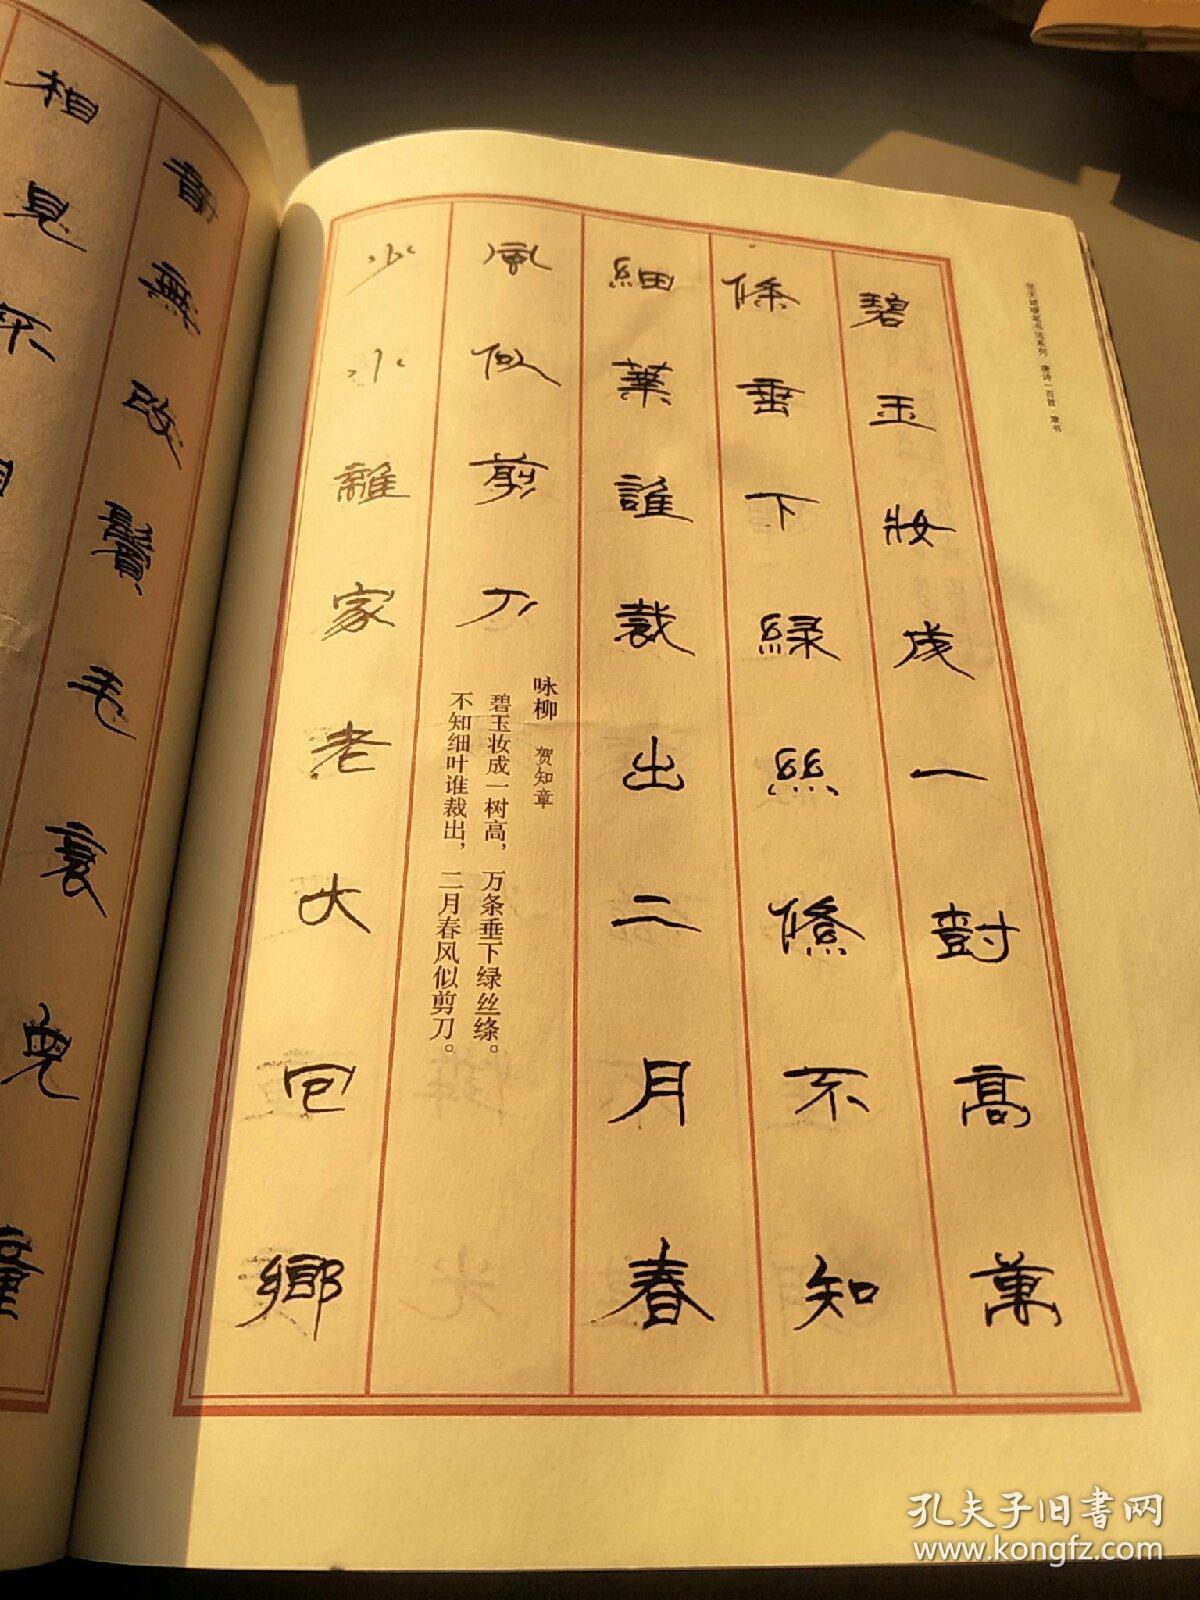 硬笔书法系列 唐诗一百首 隶书
碧玉妝成一尌高萬
條垂下緑絲絛不知
細葉誰裁出二月春
風似剪刀
咏柳 贺知章
碧玉妆成一树高，万条垂下绿丝绦。
不知细叶谁裁出，二月春风似剪刀。
少小離家老大回鄉
音無改鬢毛衰兒童
相見不
孔夫子旧书网
www.kongfz.com